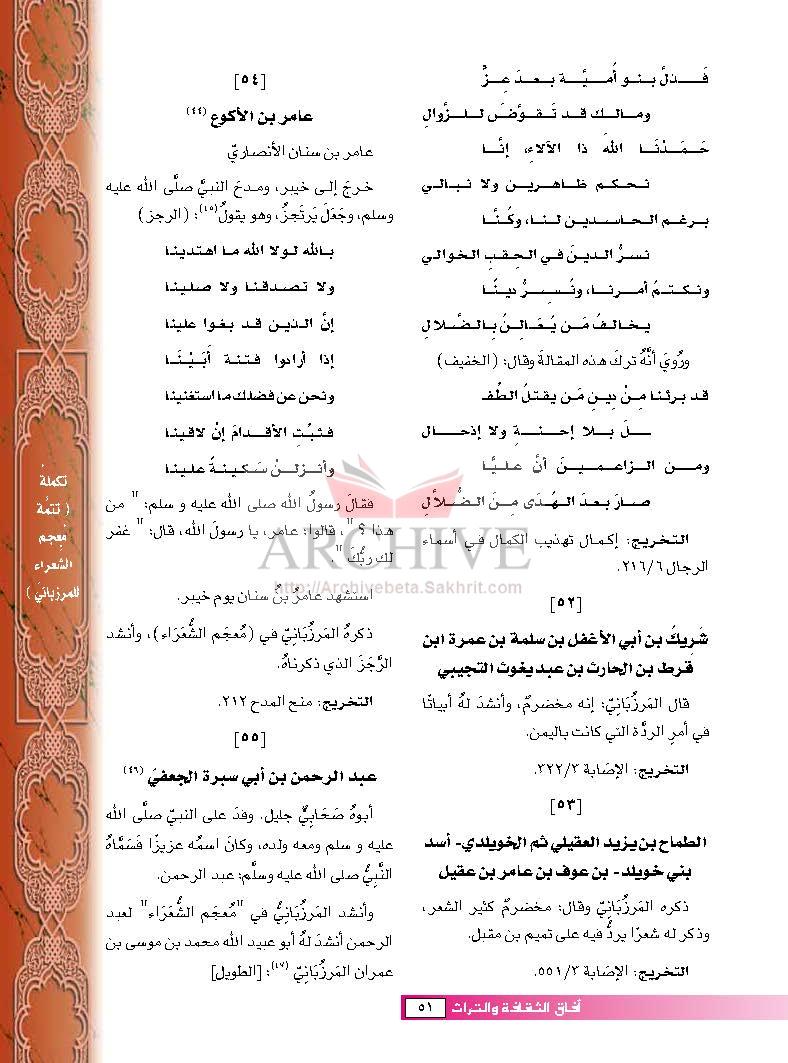 فَــدلَّ بـنـو أُمــيَّــة بـعـدَ عِــزٍّ
ومـالـك قـد تَـقـوَّضَ لـلـزَّوالِ
حَـمَـدْنَـا اللهَ ذا الآلاءِ، إنَّـا
نـحـكـم ظـاهـريـن ولا نـبـالـي
بـرغـم الـحـاسـديـن لـنـا، وكُـنَّـا
نسرُّ الدينَ في الحِقبِ الخوالي
ونـكـتـمُ أمـرنـا، ونُـسِـرُّ ديـنًـا
يـخـالـفُ مَـن يُـعَـالِـنُ بِـالـضَّـلالِ
ورُويَ أنَّهُ تركَ هذه المقالةَ وقال: (الخفيف)
قد برئنا مِنْ دِينِ مَن يقتلُ الطِّفـ
ـــلَ بــلا إحــنــةٍ ولا إذحــال
ومـن الـزاعـمـيـنَ أنَّ عـلـيًّـا
صـارَ بـعدَ الـهُـدَى مِـنَ الـضُّـلاَّلِ
التخريج: إكـمـال تهذيب الكمال فـي أسماء
الرجال ٢١٦/٦.
[٥٢]
شَرِيكُ بن أبي الأغفل بن سلمة بن عمرة ابن
قرط بن الحارث بن عبد يغوث التجيبي
قال المَرزُبَانِيّ: إنه مخضرمٌ، وأنشدَ لهُ أبياتًا
في أمرِ الردَّة التي كانت باليمن.
التخريج: الإصَابة ٣٢٢/٣.
[٥٣]
الطماح بن يزيد العقيلي ثم الخويلدي- أسد
بني خويلد- بن عوف بن عامر بن عقيل
ذكره المَرزُبَانِيّ وقال: مخضرمٌ كثير الشعر،
وذكر له شعرًا يردُّ فيه على تميم بن مقبل.
التخريج: الإصَابة ٥٥١/٣.
[٥٤]
عامر بن الأكوع (٤٤)
عامر بن سنان الأنصاريّ
خـرجَ إلـى خيبر، ومـدحَ النبيَّ صلَّى الله عليه
وسلم، وجَعَلَ يَرتَجزُ، وهو يقولُ(٤٥): (الرجز)
بـالله لـولا الله مـا اهتدينا
ولا تـصـدقـنـا ولا صـلـيـنا
إنَّ الـذيـن قـد بـغـوا علينا
إذا أرادوا فـتـنـة أَبَـيْـنَـا
ونحن عن فضلك ما استغنينا
فـثـبُـتِ الأقـدامَ إنْ لاقينا
وأنـزلـنْ سَـكـيـنـةً علينا
فقالَ رسولُ الله صلى الله عليه و سلم: " من
هذا ؟ "، قالوا: عامر، يا رسولَ الله، قال: " غفر
لك ربُّكَ ".
استشهد عامرُ بنُ سنان يوم خيبر.
ذكرهُ المَرزُبَانِيّ في (مُعجَم الشُّعَرَاء)، وأنشد
الرَّجَزَ الذي ذكرناهُ.
التخريج: منح المدح ٢١٢.
[٥٥]
عبد الرحمن بن أبي سبرة الجعفيّ (٤٦)
أبوهُ صَحَابِيٌّ جليل. وفدَ على النبيّ صلَّى الله
عليه و سلم ومعه ولده، وكانَ اسمُه عزيزًا فَسَمَّاهُ
النَّبِيُّ صلى الله عليه وسلَّم: عبد الرحمن.
وأنشد المَرزُبَانِيُّ في "مُعجَم الشُّعَرَاء" لعبد
الرحمن أنشدَ لهُ أبو عبيد الله محمد بن موسى بن
عمران المَرزُبَانِيّ (٤٧): [الطويل]
تكملةُ
( تَتمَّة
مُعجم
الشعراء
للمرزبانيّ )
ARCHIVE
http://Archivebeta.Sakhrit.com
آفاق الثقافة والتراث ٥١